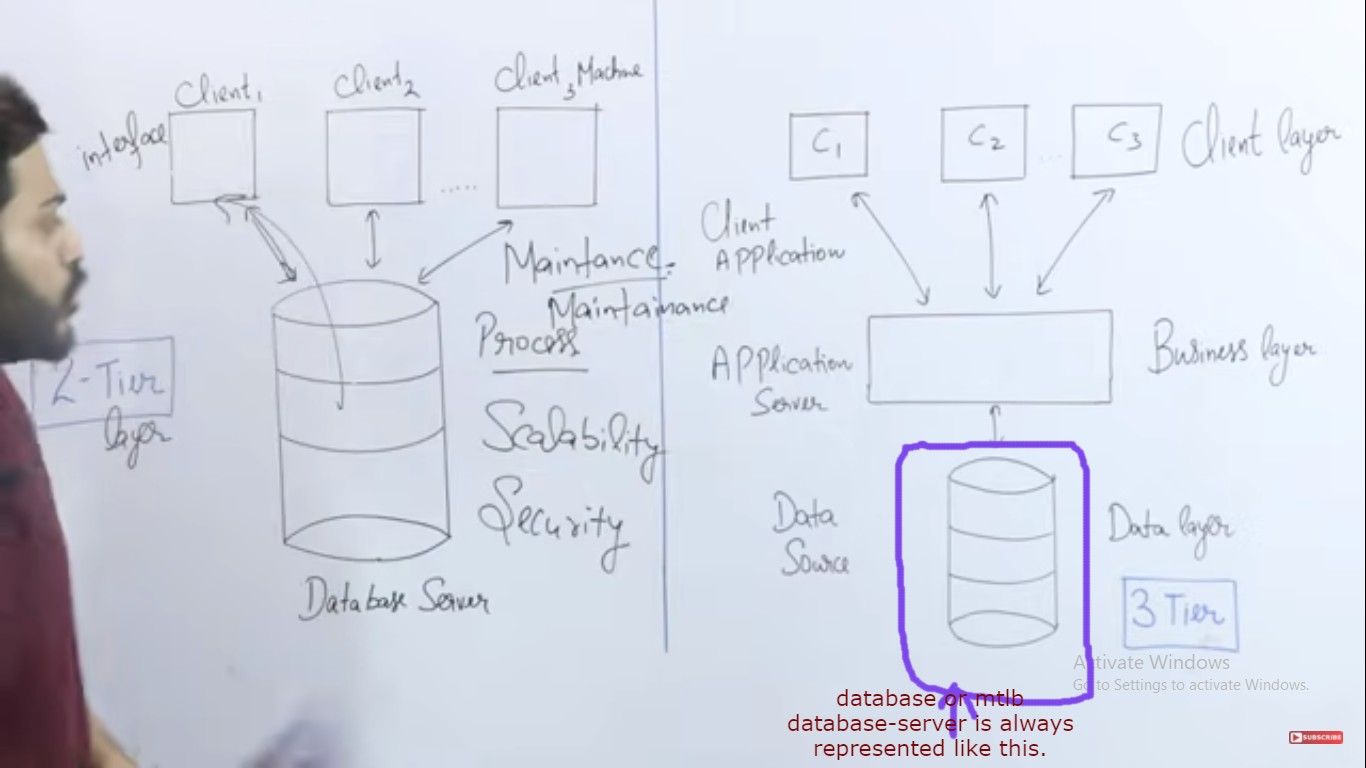 Client1
Client2
Client3 Machine
interface
.....
Maintance:
Maintainance
Process
Scalability
Security
2-Tier
layer
Database Server
C1
C2
...
C3
Client layer
Client
APPlication
APPlication
Server
Business layer
Data
Source
Data layer
3 Tier
Activate Windows
Go to Settings to activate Windows.
database or mtlb
database-server is always
represented like this.
SUBSCRIBE